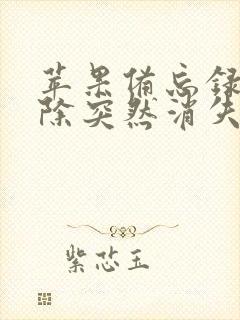 苹果备忘录
除突然消失
紫芯玉